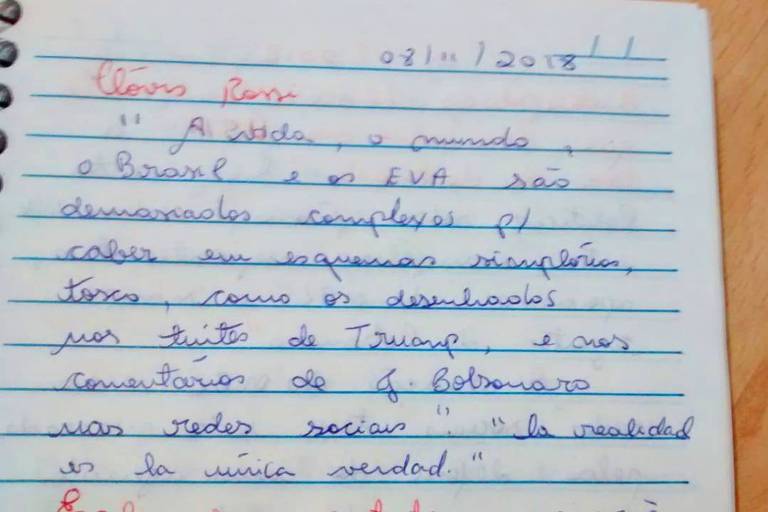 08/11/2018
Clóvis Rossi
"A vida, o mundo,
o Brasil e os EUA são
demasiados complexos p/
caber em esquemas simplórios,
tosco, como os desenhados
nos tuítes de Trump, e nos
comentários de J. Bolsonaro
nas redes sociais". "la realidad
es la única verdad."